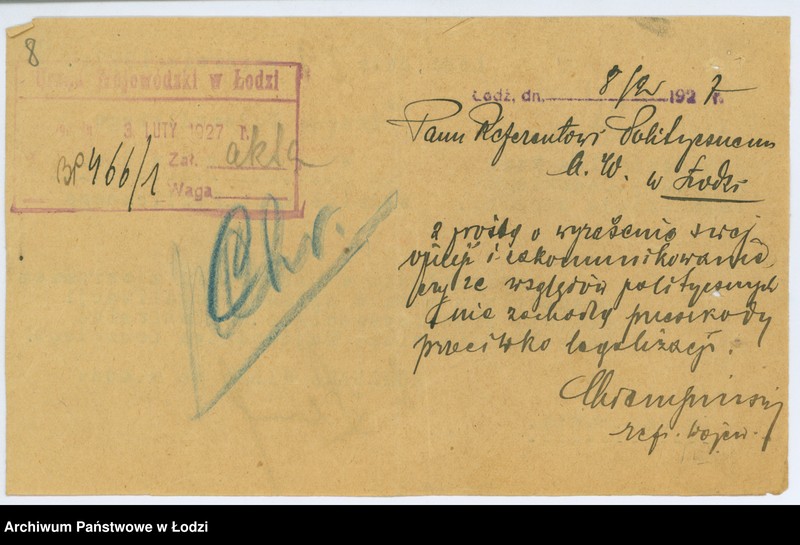 8
Urząd Wojewódzki w Łodzi
3. LUTY 1927 r.
BP 466/1
Zał. akta
Waga
Chr.
Łódź, dn. 8/2 1927 r.
Panu Referentowi Politycznemu
U. W.
w Łodzi
z prośbą o wyrażenie swej
opinji i zakomunikowanie
czy ze względów politycznych
nie zachodzą przeszkody
przeciwko legalizacji.
ref. Wojew.
Archiwum Państwowe w Łodzi